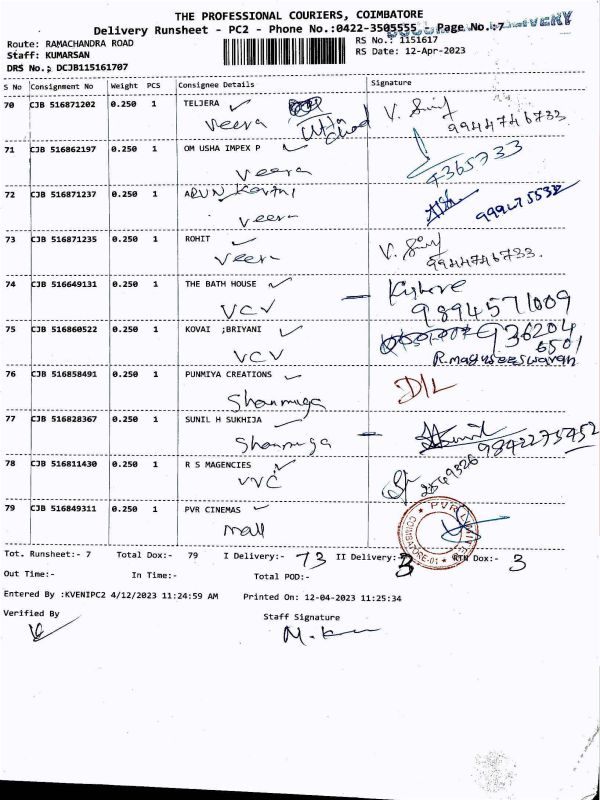 THE PROFESSIONAL COURIERS, COIMBATORE
Delivery Runsheet - PC2 - Phone No.:0422-3505555 - Page No.:7
DELIVERY
Route: RAMACHANDRA ROAD RS No.: 1151617
Staff: KUMARSAN RS Date: 12-Apr-2023
DRS No.: DCJB115161707
S No Consignment No Weight PCS Consignee Details Signature
70 CJB 516871202 0.250 1 TELJERA V.
veera 9944746733
71 CJB 516862197 0.250 1 OM USHA IMPEX P
veera 7365733
72 CJB 516871237 0.250 1 ARUN
veera
73 CJB 516871235 0.250 1 ROHIT V.
veera 9944746733.
74 CJB 516649131 0.250 1 THE BATH HOUSE — Kishore
VCV 9894571009
75 CJB 516860522 0.250 1 KOVAI ;BRIYANI 936204
VCV 6501
76 CJB 516858491 0.250 1 PUNMIYA CREATIONS D/L
Shanmuga
77 CJB 516828367 0.250 1 SUNIL H SUKHIJA —
Shanmuga 9842275452
78 CJB 516811430 0.250 1 R S MAGENCIES 2549326
VVC
79 CJB 516849311 0.250 1 PVR CINEMAS PVR LIMITED COIMBATORE-01
mall
Tot. Runsheet:- 7 Total Dox:- 79 I Delivery:- 73 II Delivery:- 3 RTN Dox:- 3
Out Time:- In Time:- Total POD:-
Entered By :KVENIPC2 4/12/2023 11:24:59 AM Printed On: 12-04-2023 11:25:34
Verified By Staff Signature